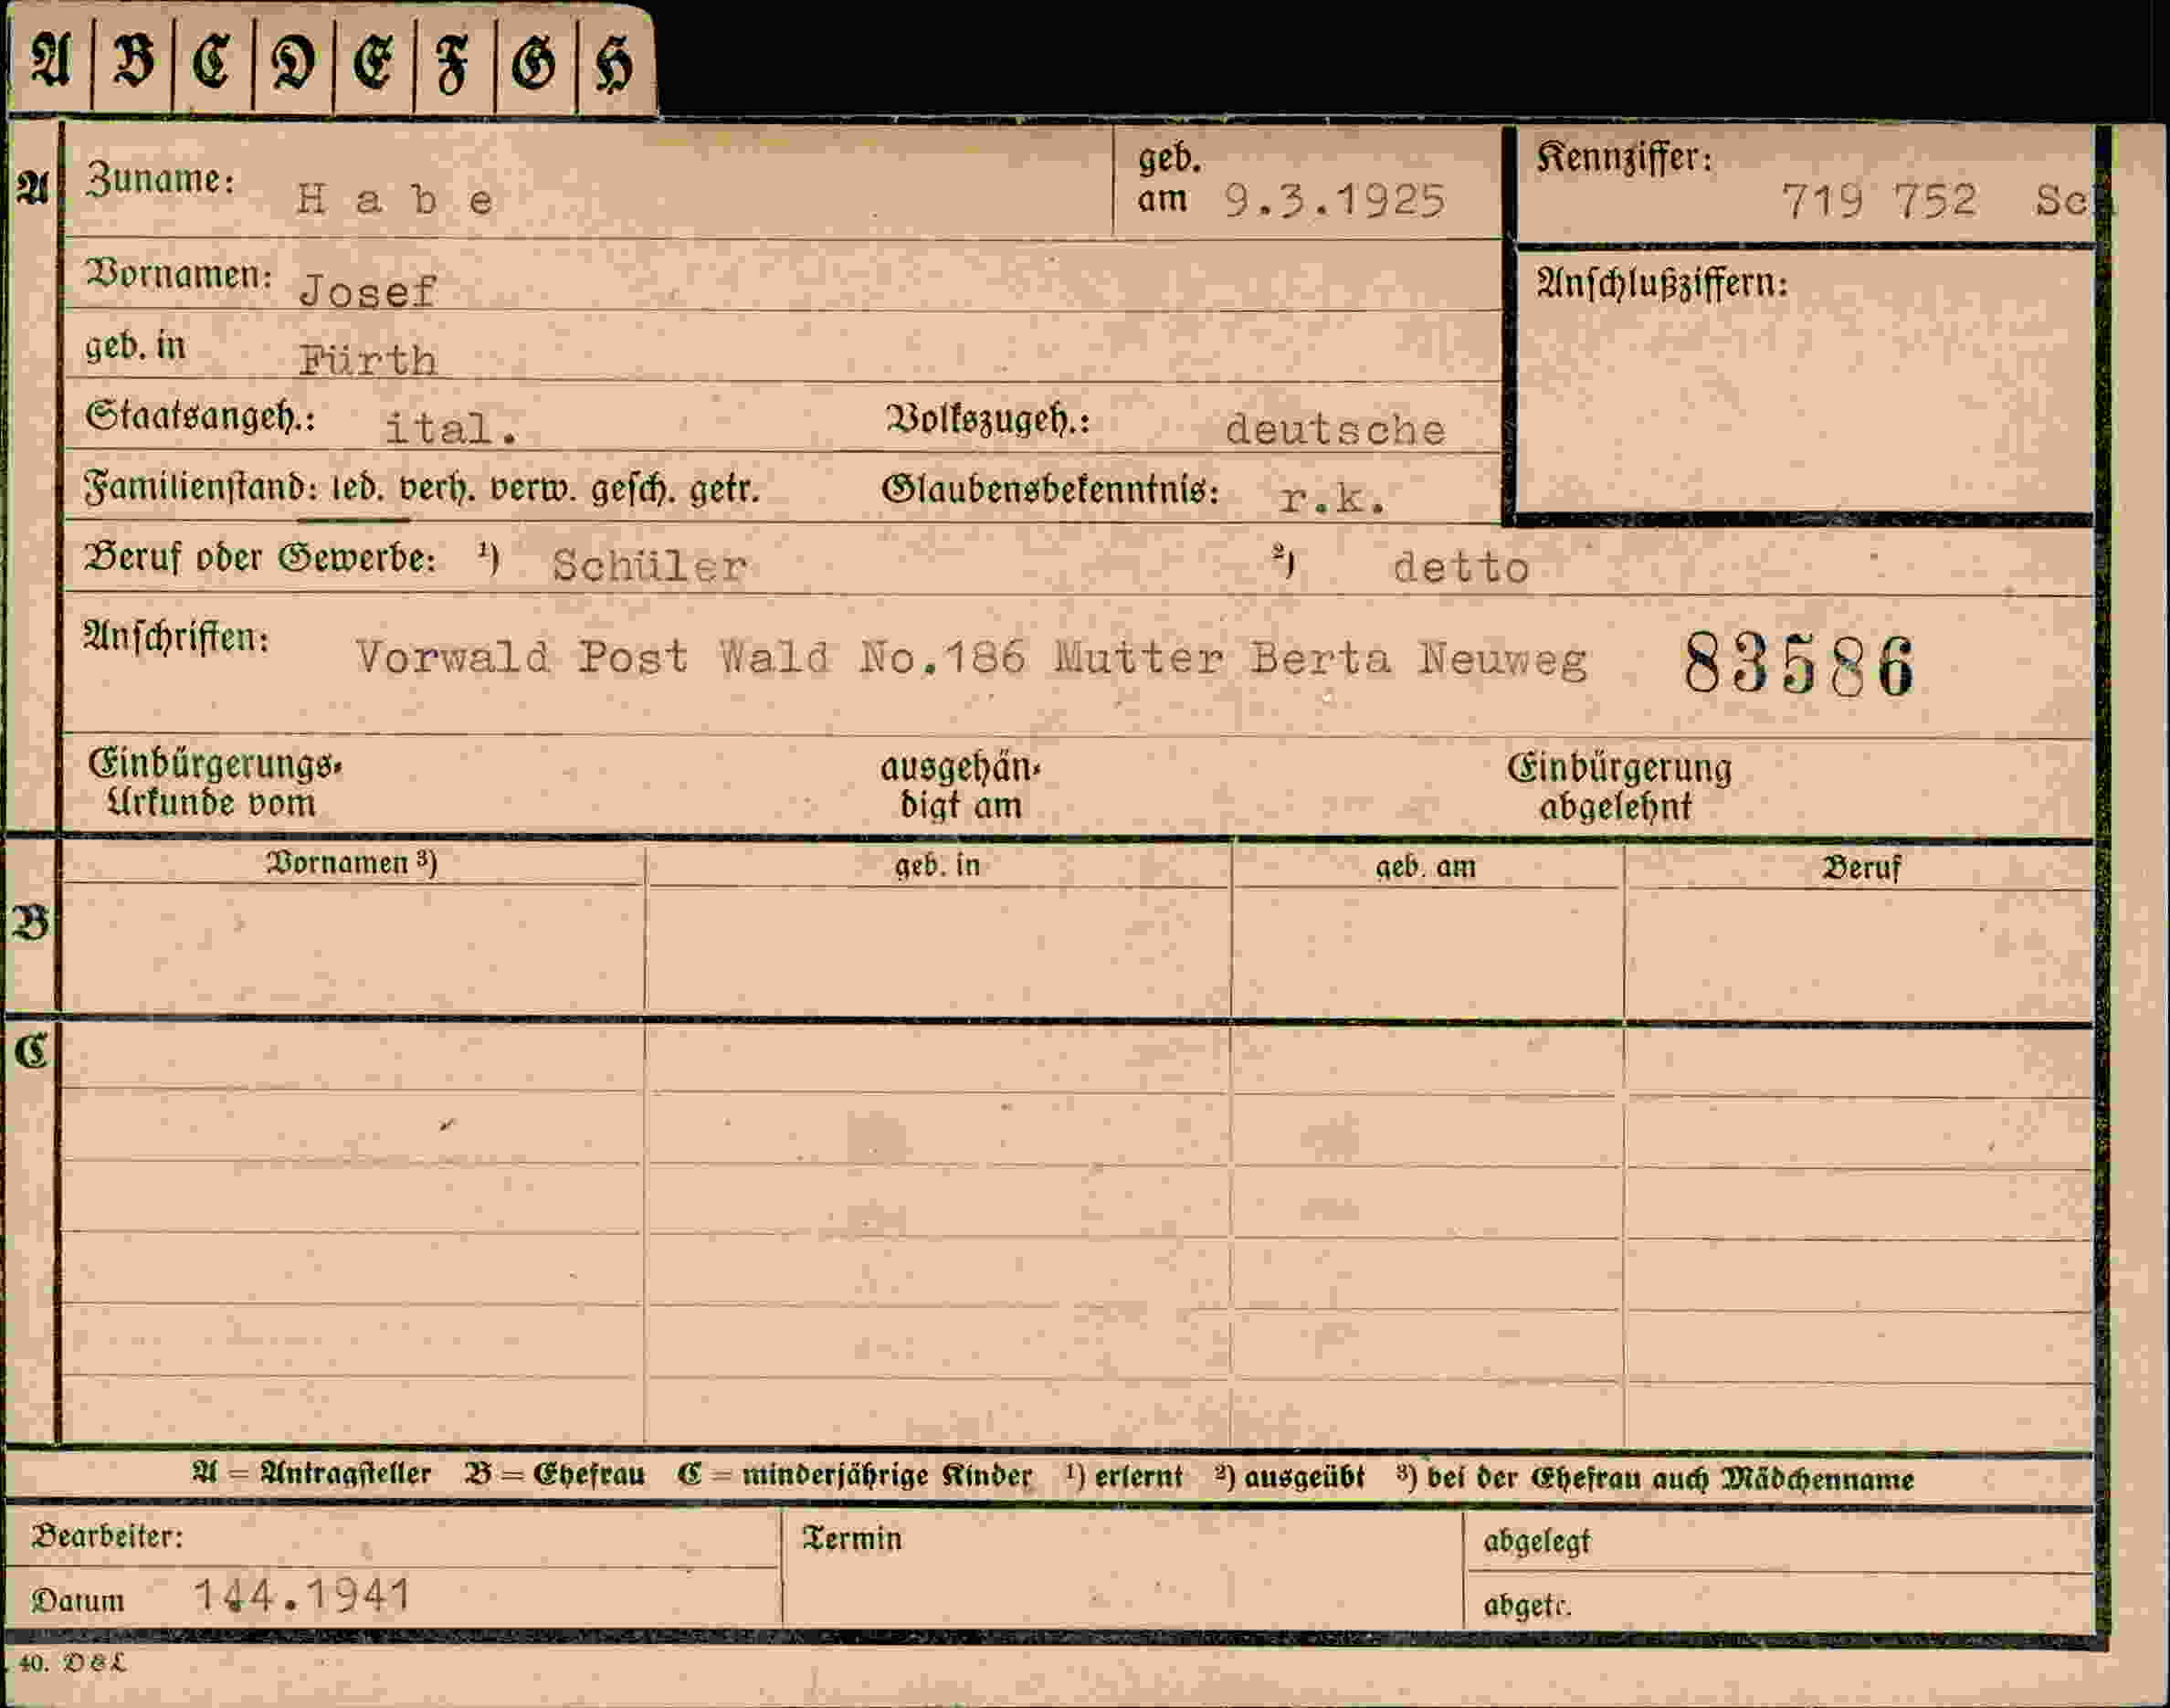 A B C D E F G H
A Zuname: Habe geb. am 9.3.1925 Kennziffer: 719 752 Sc
Vornamen: Josef Anschlußziffern:
geb. in Fürth
Staatsangeh.: ital. Volkszugeh.: deutsche
Familienstand: led. verh. verw. gesch. getr. Glaubensbekenntnis: r.k.
Beruf oder Gewerbe: ¹) Schüler ²) detto
Anschriften: Vorwald Post Wald No.186 Mutter Berta Neuweg 83586
Einbürgerungs- ausgehän- Einbürgerung
Urkunde vom digt am abgelehnt
Vornamen ³) geb. in geb. am Beruf
B
C
A = Antragsteller B = Ehefrau C = minderjährige Kinder ¹) erlernt ²) ausgeübt ³) bei der Ehefrau auch Mädchenname
Bearbeiter: Termin abgelegt
Datum 144.1941 abgetr.
40. DGL